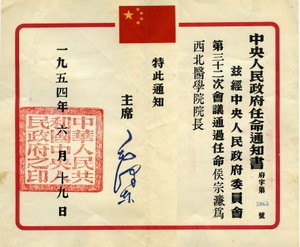 中央人民政府任命通知書
府字第3963號
茲經中央人民政府委員會
第三十二次會議通過任命侯宗濂爲
西北醫學院院長
特此通知
主席
毛澤東
一九五四年六月十九日
中華人民共
和國中央人
民政府之印